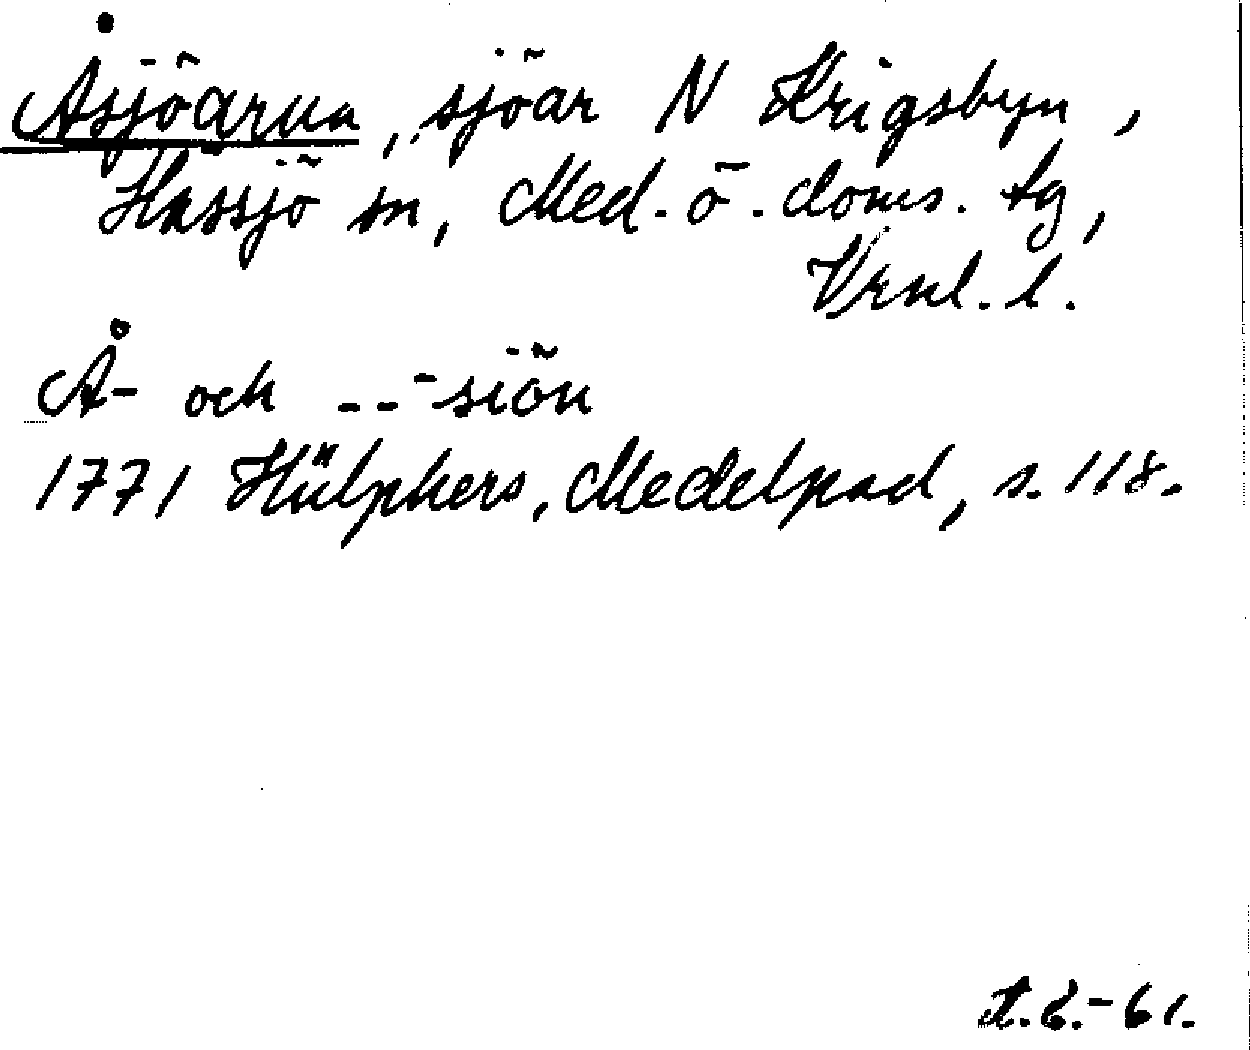 Åsjöarna, sjöar N Krigsbyn,
Hässjö sn, Med. ö. doms. tg,
Vrnl. l.
Å- och - - - siön
1771 Hülphers, Medelpad, s. 118.